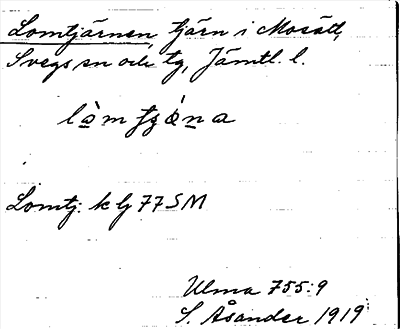 Lomtjärnen, tjärn i Mosätt,
Svegs sn och tg, Jämtl. l.
Lomtj. k bl 77 SM
Ulma 755:9
S. Åsander 1919